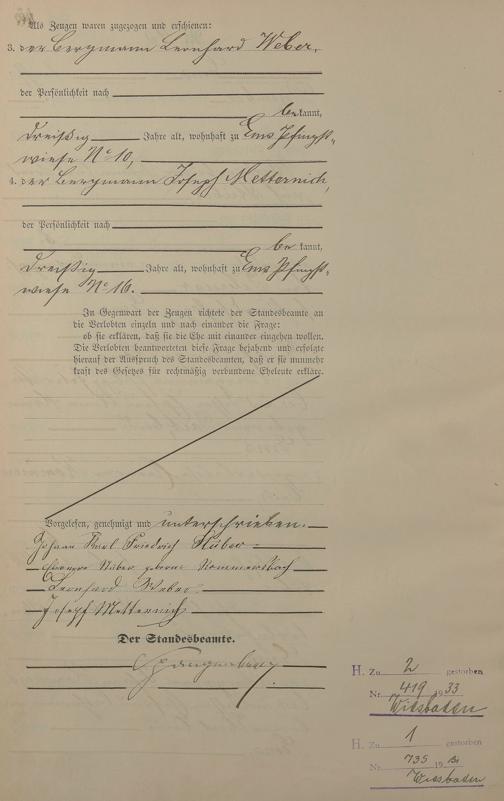 Als Zeugen waren zugezogen und erschienen:
3. der Bergmann Leonhard Weber,
der Persönlichkeit nach
be kannt,
dreißig Jahre alt, wohnhaft zu Ems Pfingst-
wiese No 10,
4. der Bergmann Joseph Metternich,
der Persönlichkeit nach
be kannt,
dreißig Jahre alt, wohnhaft zu Ems Pfingst-
wiese No 16.
In Gegenwart der Zeugen richtete der Standesbeamte an
die Verlobten einzeln und nach einander die Frage:
ob sie erklären, daß sie die Ehe mit einander eingehen wollen.
Die Verlobten beantworteten diese Frage bejahend und erfolgte
hierauf der Ausspruch des Standesbeamten, daß er sie nunmehr
kraft des Gesetzes für rechtmäßig verbundene Eheleute erkläre.
Vorgelesen, genehmigt und unterschrieben.
Johann Karl Friedrich
geborne
Leonhard Weber
Joseph Metternich
Der Standesbeamte.
Spangenberg
H. Zu 2 gestorben
Nr. 419 1933
Wiesbaden
H. Zu 1 gestorben
Nr. 735 19
Wiesbaden